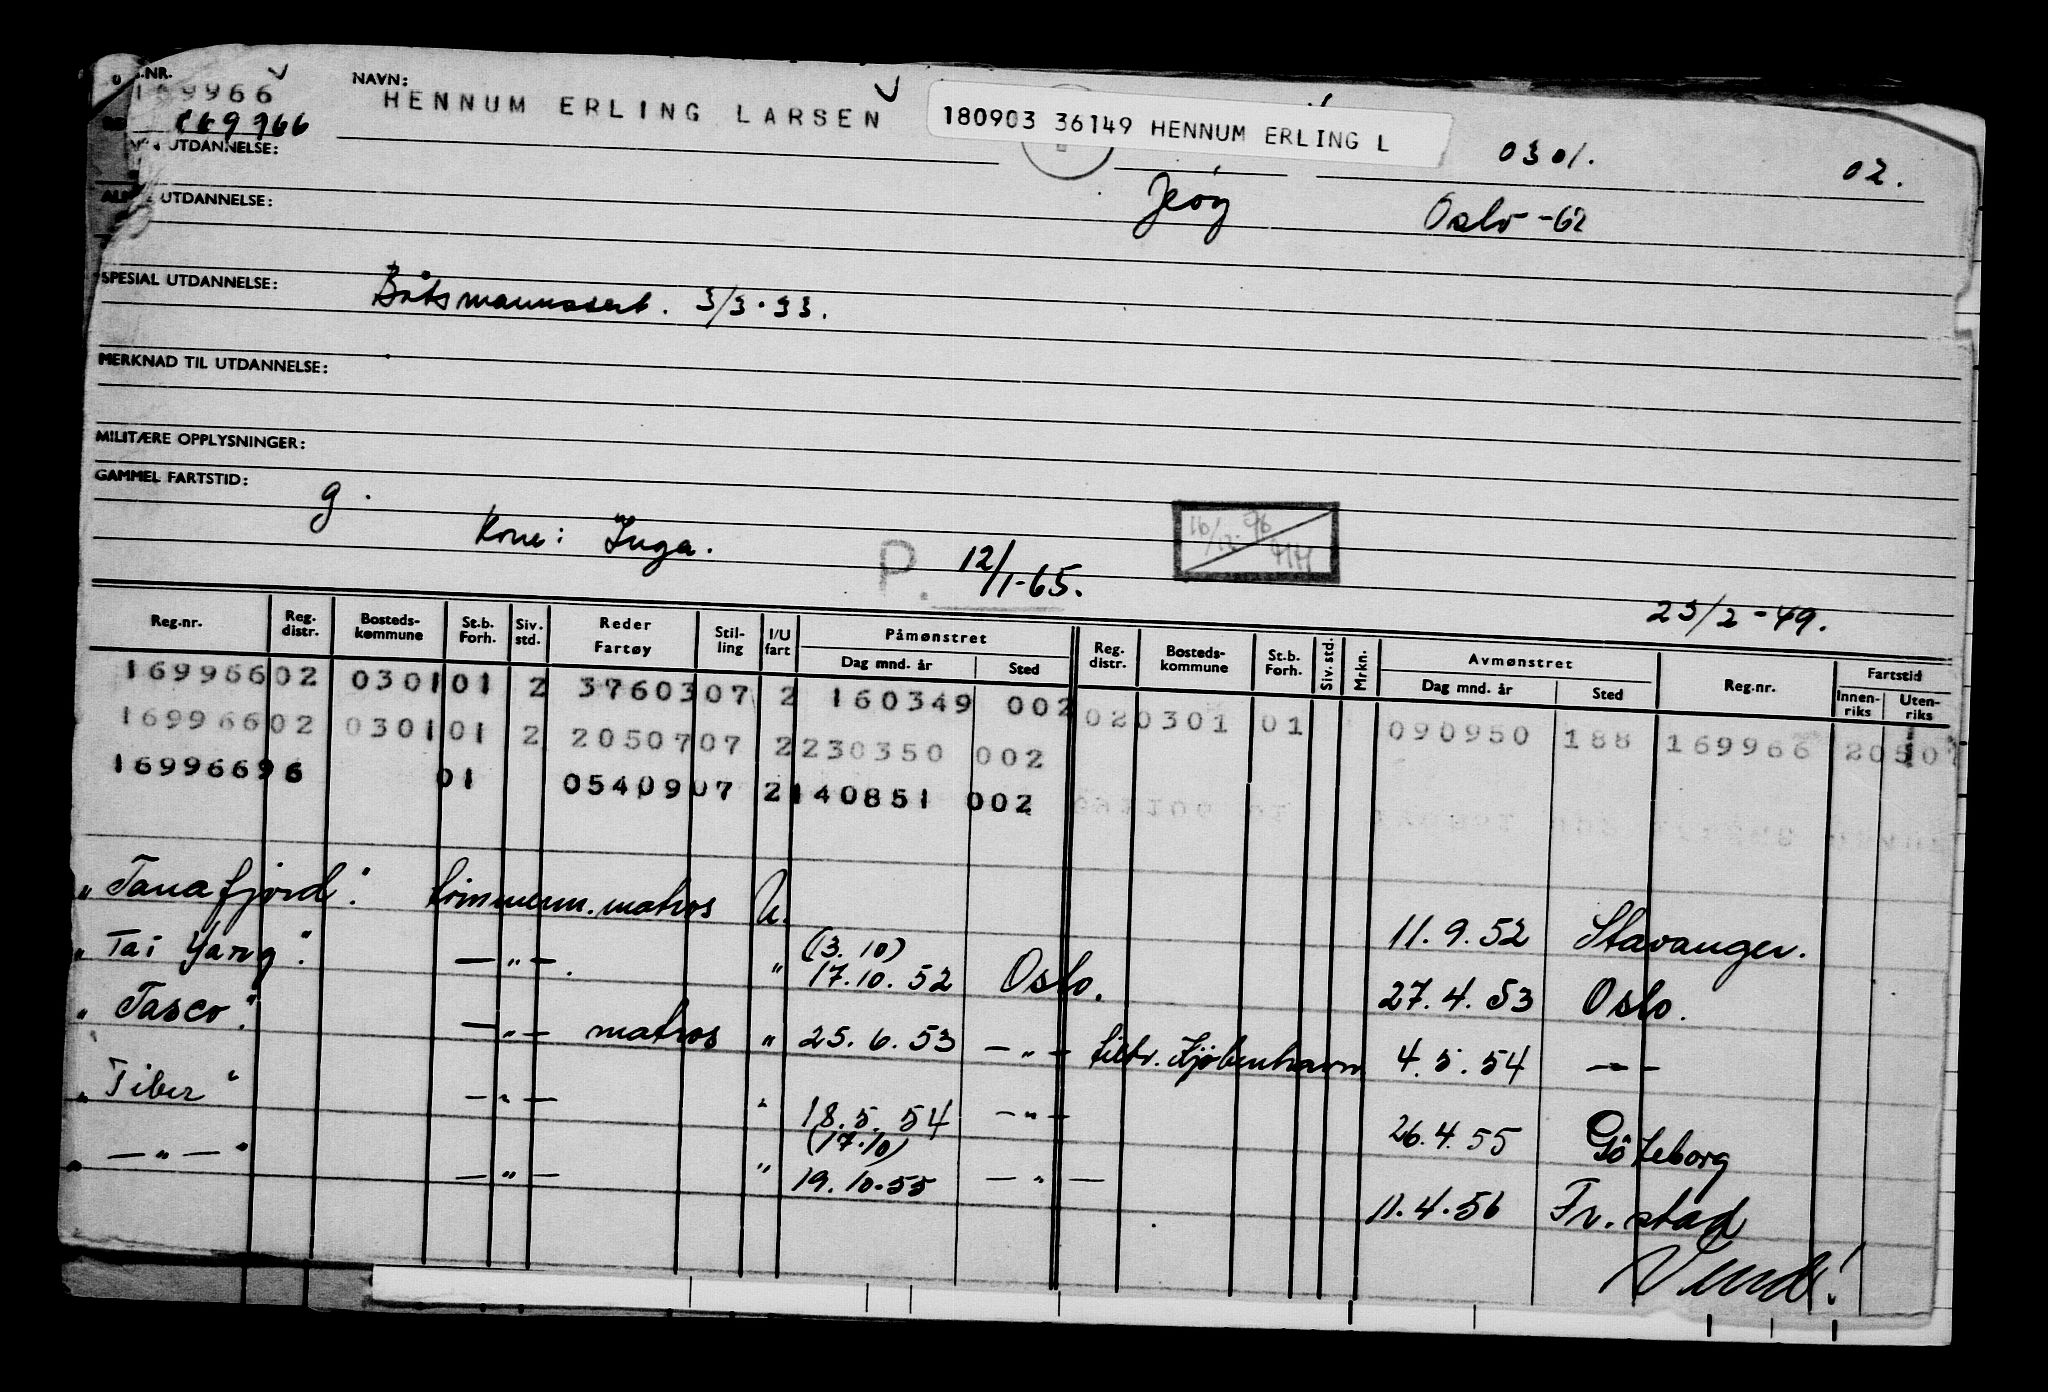 .NR. NAVN:
169966 HENNUM ERLING LARSEN 180903 36149 HENNUM ERLING L
169966 0301. 02.
UTDANNELSE:
UTDANNELSE: Oslo -62
SPESIAL UTDANNELSE: Båtsmannssert. 3/3.33.
MERKNAD TIL UTDANNELSE:
MILITÆRE OPPLYSNINGER:
GAMMEL FARTSTID: g.
16/12-96 HH
Kone: Inga. P. 12/1-65.
23/2-49.
Reg.nr. Reg. distr. Bosteds-kommune St.b. Forh. Siv. std. Reder Fartøy Stil-ling I/U fart Påmønstret Dag mnd. år Sted Reg. distr. Bosteds-kommune St.b. Forh. Siv. std. Mrkn. Avmønstret Dag mnd. år Sted Reg.nr. Fartstid Innen-riks Uten-riks
169966 02 0301 01 2 37603 07 2 160349 002 02 0301 01 090950 188 169966 20507
169966 02 0301 01 2 20507 07 2 230350 002
169966 96 01 05409 07 2 140851 002
"Tanafjord". tømmerm. matros U. 11.9.52 Stavanger.
"Tai Yang". — " —. " (3.10) 17.10.52 Oslo. 27.4.53 Oslo.
"Tasco". — " — matros " 25.6.53 — " — tiltr. Kjøbenhavn 4.5.54 — " —
"Tiber" — " — " 18.5.54 — " — 26.4.55 Göteborg
" — " — " — " — " (17.10) 19.10.55 — " — 11.4.56 Fr.stad
Vend!